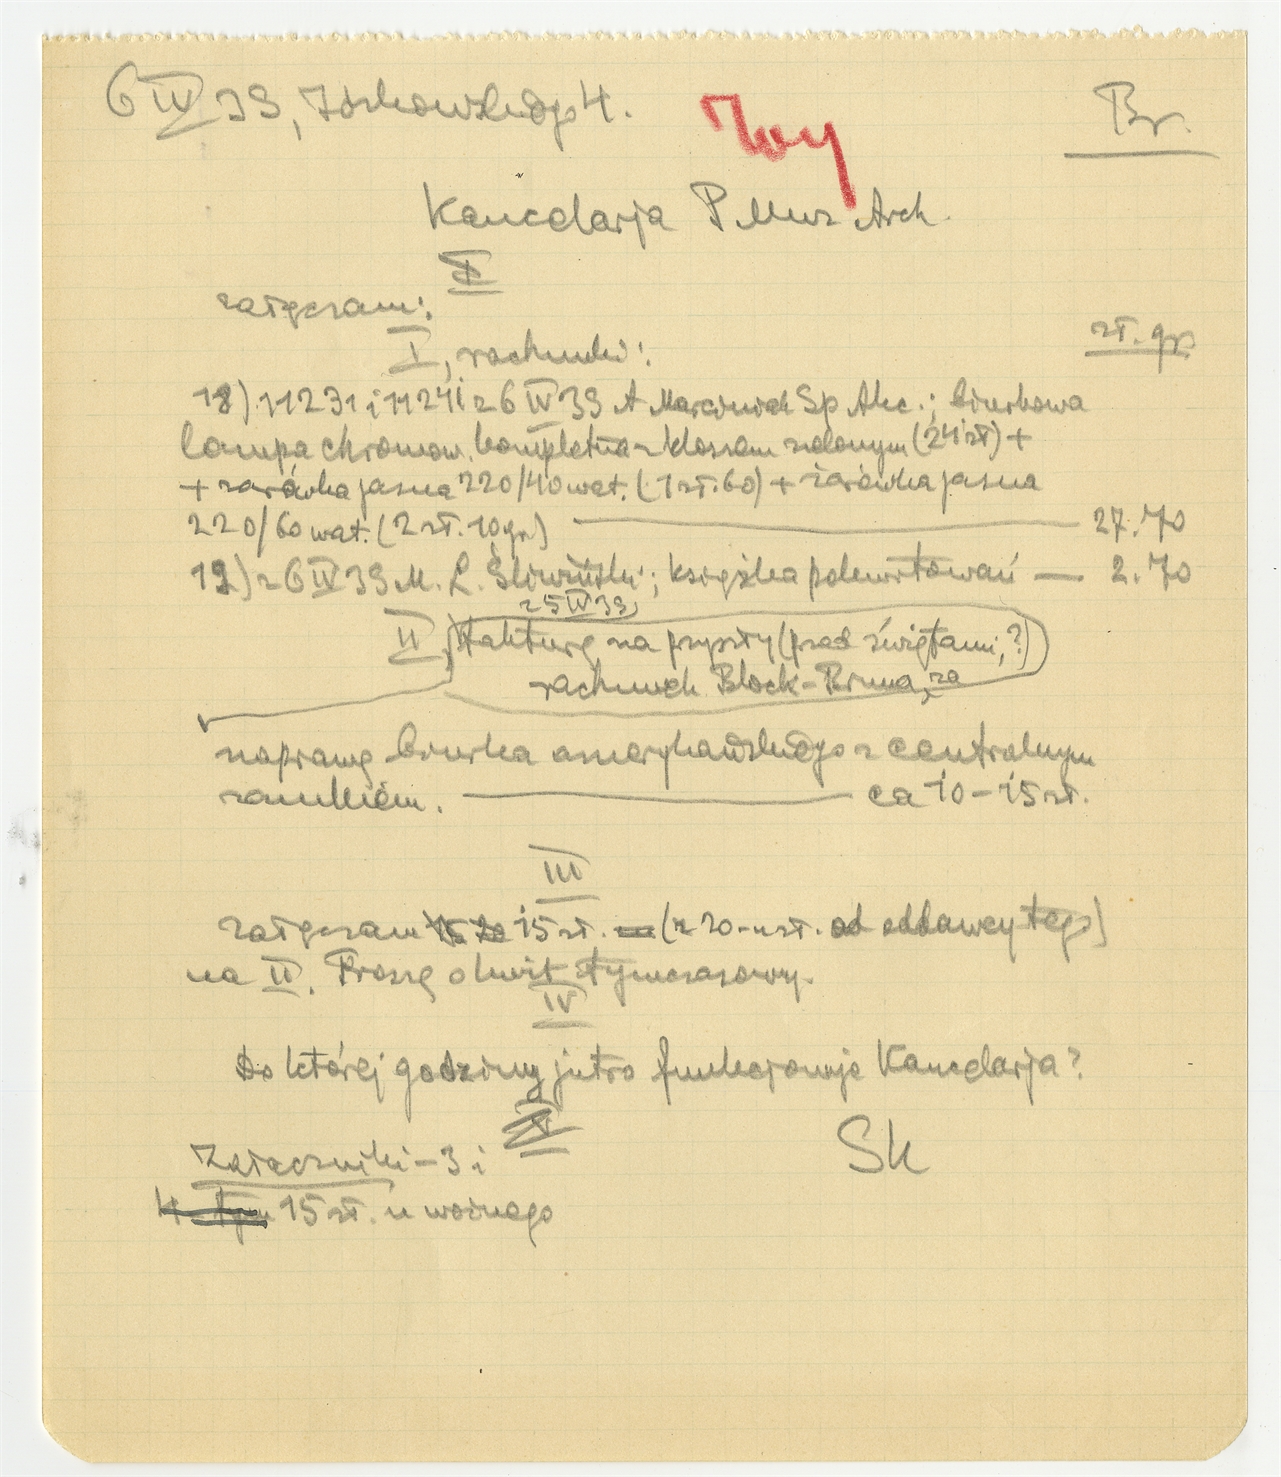 6 IV 39, Zórkowskiego 4.
Br.
Kancelarja P Muz Arch.
I
załączam:
I, rachunki:
zł. gr.
18) 11231 i 11241 z 6 IV 39 A Marciniak Sp Akc.; biurkowa
lampa chromow. kompletna z kloszem zielonym (24 zł) +
+ żarówka jasna 220/40 wat. (1 zł. 60) + żarówka jasna
220/60 wat. (2 zł. 10 gr.) — 27.70
19) z 6 IV 39 M. L. Śliwiński; książka pokwitowań — 2.70
25 IV 39,
II, fakturę na przyszły (przed świętami,?)
rachunek Block-Bruna, za
naprawę biurka amerykańskiego z centralnym
zamkiem. — ca 10-15 zł.
III
załączam 15 zł. (z 20-u zł. od oddawcy tego)
na II. Proszę o kwit tymczasowy.
IV
Do której godziny jutro funkcjonuje Kancelarja?
V
Załączniki - 3 i
Sk
15 zł. u woźnego